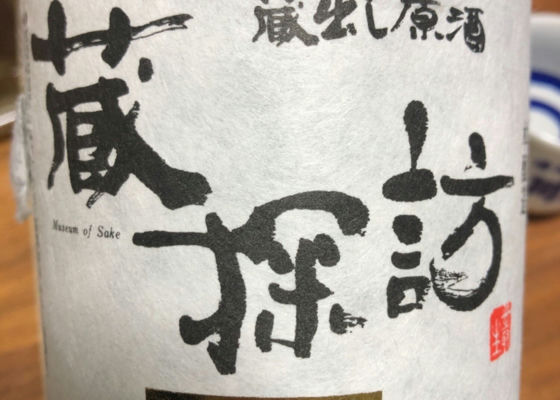 蔵出し原酒
蔵探訪
Museum of Sake